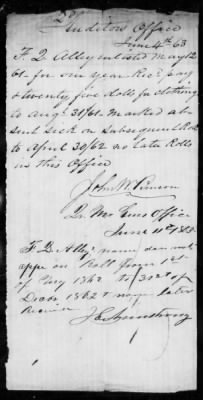 2d
Auditors Office
June 4th 63
F. Q. Alley enlisted May 12
61. for one year Rec'd pay
& twenty five dolls for clothing
to Augt 31/61. Marked ab
sent sick on subsequent Rolls
to April 30/62 no late Rolls
in this Office
John W.
Qr Mr Office
June 11th 1863
F Q Ally's name does not
appr on Rolls from 1st
of May 1862 to 31st of
Decr 1862 & none later
Received
J Armstrong